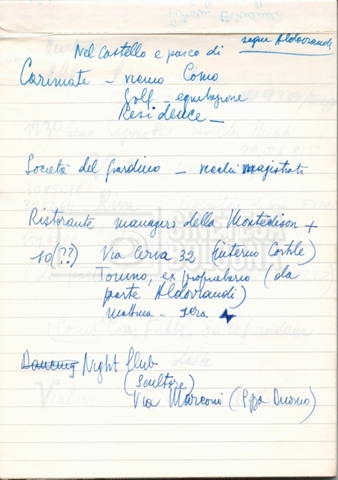 segue Aldovrandi
Nel Castello e parco di
Carimate - vicino Como
Golf - equitazione
Residence -
Società del giardino - vecchi magistrati
Ristorante managers della Montedison +
10(??) Via Cerva 32 (interno Cortile)
Torino, ex proprietario (da
parte Aldovrandi)
mattina - sera
Dancing Night Club
(Scultore)
Via Marconi (P.zza Duomo)